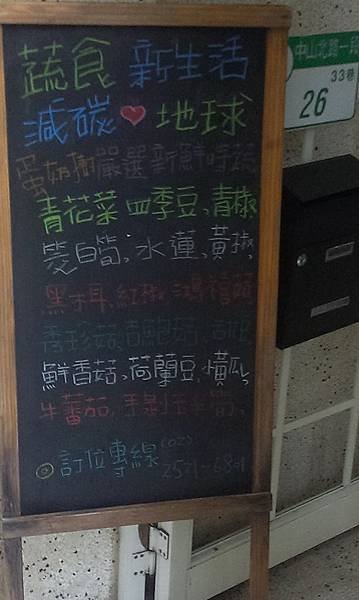 蔬食 新生活
減碳❤地球
蛋奶樹嚴選新鮮時蔬
青花菜、四季豆、青椒
筊白筍、水蓮、黃椒、
黑木耳、紅椒、鴻禧菇
杏鮑菇、
鮮香菇、荷蘭豆、小黃瓜、
牛蕃茄、
訂位專線 (02)
中山北路一段
33巷
26